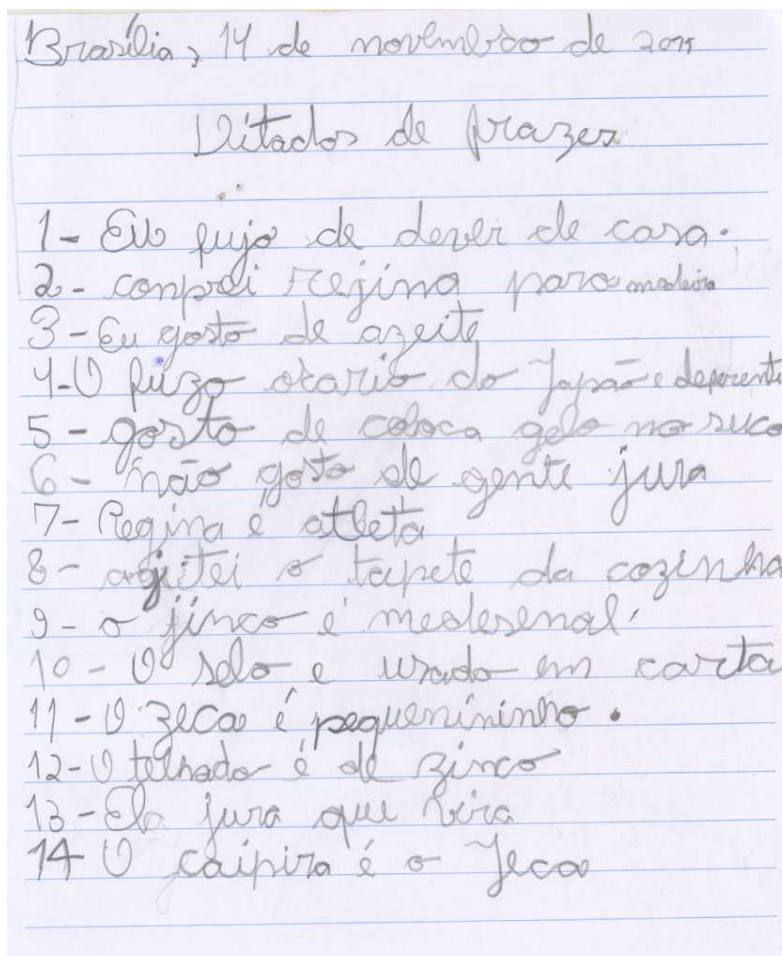 Brasília, 14 de novembro de 2011
Ditados de frazes
1- Eu fujo de dever de casa.
2- conprei rejina para madeira
3- Eu gosto de azeite
4- O fuzo orario do Japão e deferente
5- gosto de coloca gelo no suco
6- não gosto de gente jura
7- Regina é atleta
8- agitei o tapete da cozinha
9- o jinco é medesenal
10- O selo e uzado em carta
11- O zeca é pequenininho.
12- O telhado é de zinco
13- Ela jura que vira
14 O caipira é o Jeca